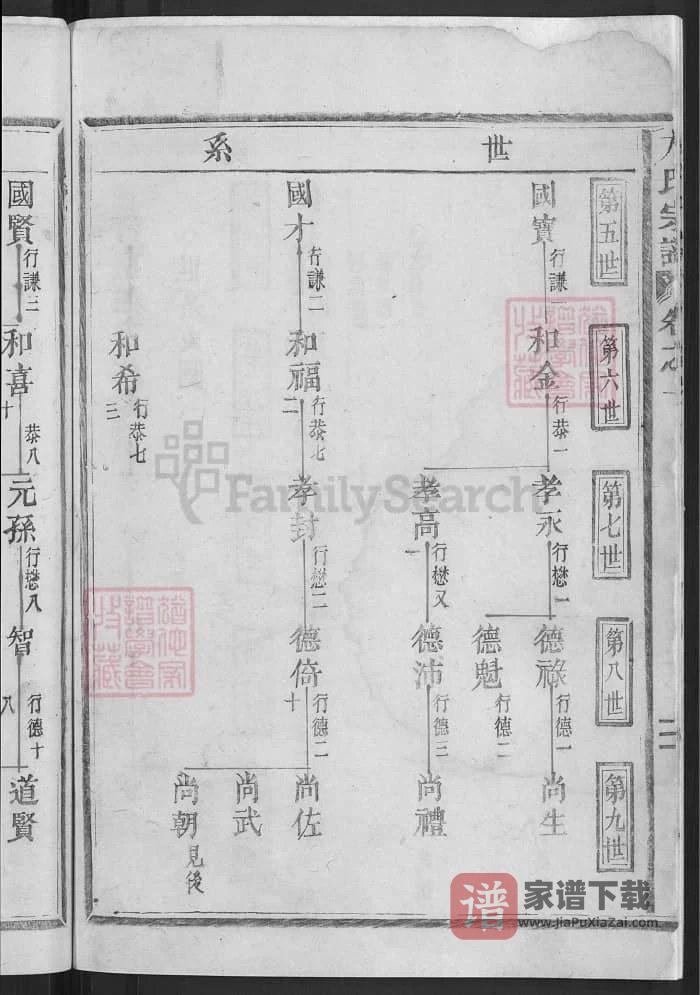 氏宗譜
卷之
二
世系
第五世
第六世
第七世
第八世
第九世
國寶 行謙一
和金 行恭一
孝永 行懋一
德祿 行德一
尚生
德魁 行德二
孝高 行懋又一
德沛 行德三
尚禮
國才 行謙二
和福 行恭七二
孝封 行懋二
德倚 行德二十
尚佐
尚武
尚朝 見後
和希 行恭七三
國賢 行謙三
和喜 恭八十
元孫 行懋八
智 行德十八
道賢
FamilySearch
谱 家谱下载
www.JiaPuXiaZai.com